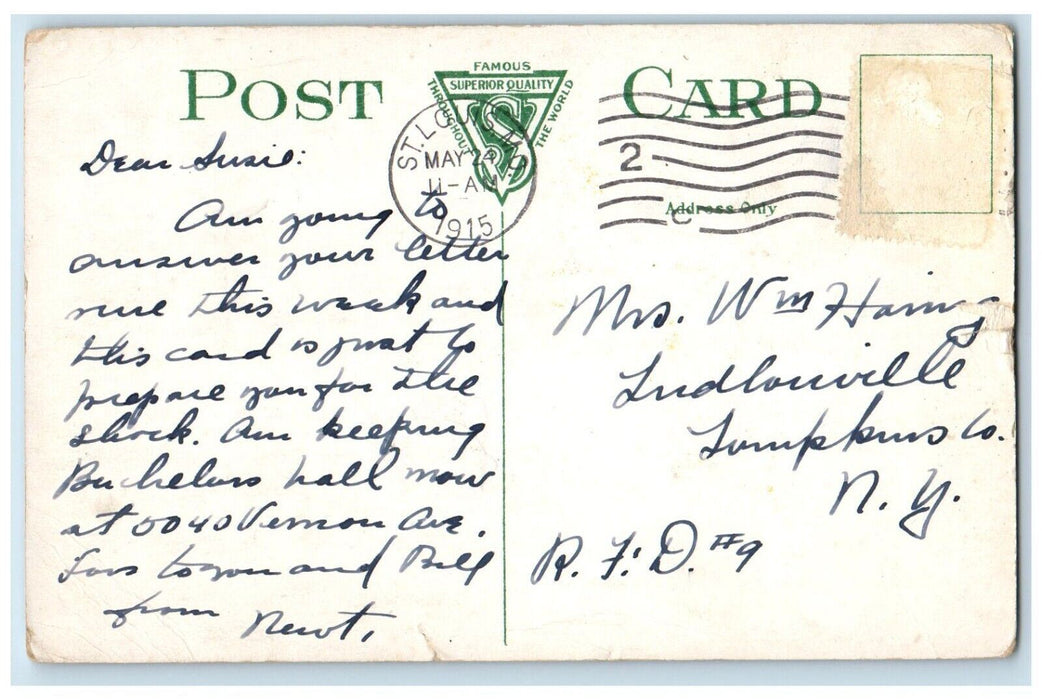 POST CARD
FAMOUS
SUPERIOR QUALITY
THROUGHOUT THE WORLD
ST. LOUIS
MAY 24
11-AM
1915
2
Address Only
Dear Susie:
Am going to
answer your letter
this week and
this card is just to
prepare you for the
shock. Am keeping
Bachelors hall now
at Vernon Ave.
to you and Bill
from Newt.
Mrs. Wm
Ludlowville
Tompkins Co.
N. Y.
R. F. D. #9